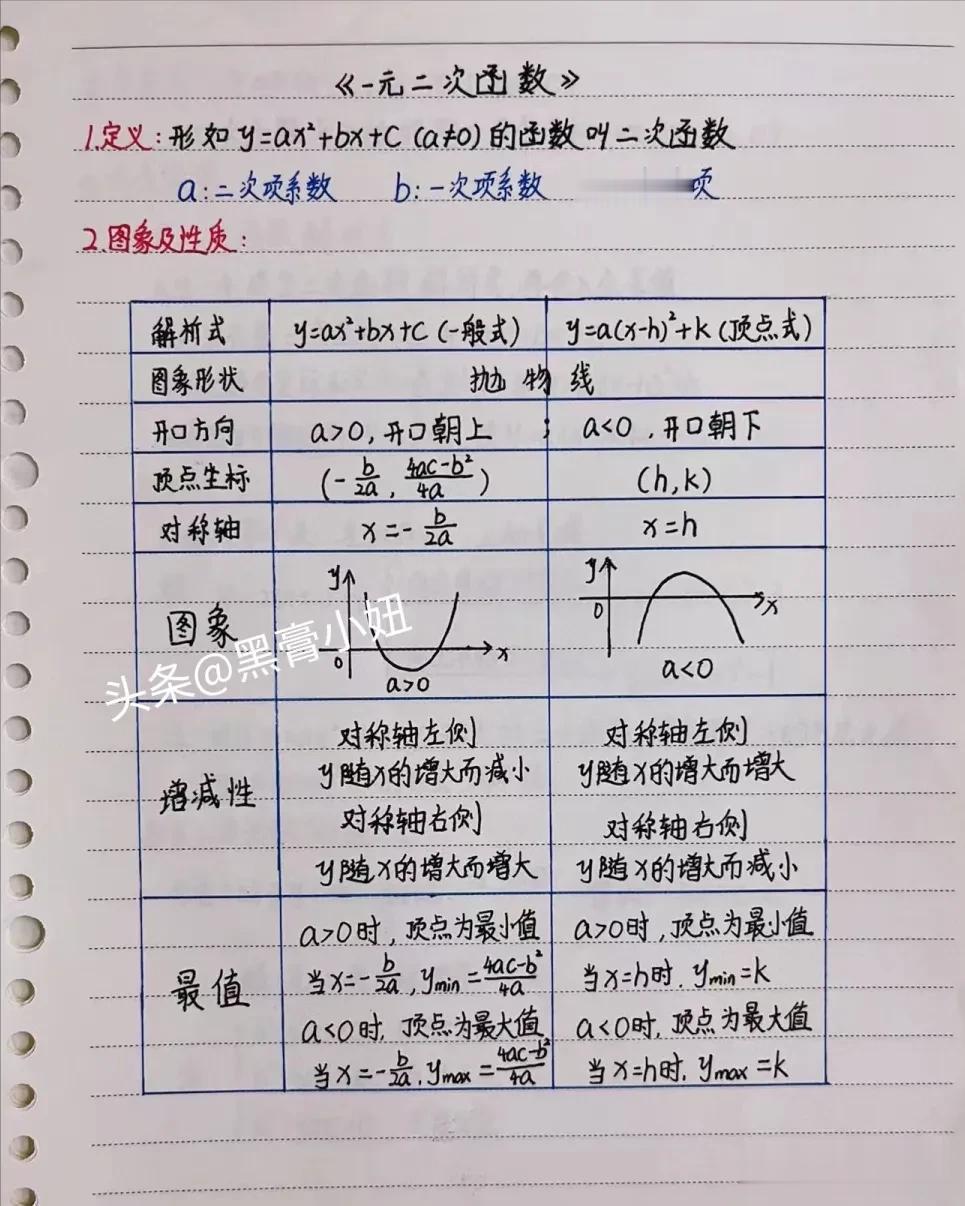 《一元二次函数》
1.定义:形如 y=ax²+bx+C (a≠0) 的函数叫二次函数
a:二次项系数 b:一次项系数 项
2.图象及性质:
解析式 y=ax²+bx+C (一般式) y=a(x-h)²+k (顶点式)
图象形状 抛物线
开口方向 a>0,开口朝上 ; a<0,开口朝下
顶点坐标 (-b/2a, 4ac-b²/4a) (h,k)
对称轴 x=-b/2a x=h
图象
y
0
x
a>0
y
0
x
a<0
头条@黑膏小妞
增减性
对称轴左侧
y随x的增大而减小
对称轴右侧
y随x的增大而增大
对称轴左侧
y随x的增大而增大
对称轴右侧
y随x的增大而减小
最值
a>0时,顶点为最小值
当x=-b/2a,ymin=4ac-b²/4a
a<0时,顶点为最大值
当x=-b/2a,ymax=4ac-b²/4a
a>0时,顶点为最小值
当x=h时.ymin=k
a<0时,顶点为最大值
当x=h时,ymax=k